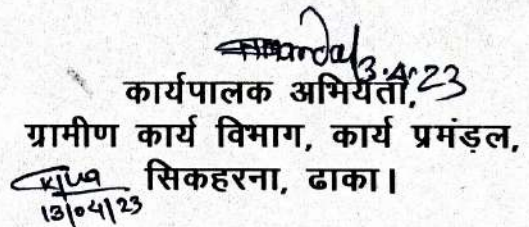 13.4.23
कार्यपालक अभियंता,
ग्रामीण कार्य विभाग, कार्य प्रमंड़ल,
सिकहरना, ढाका।
13/04/23